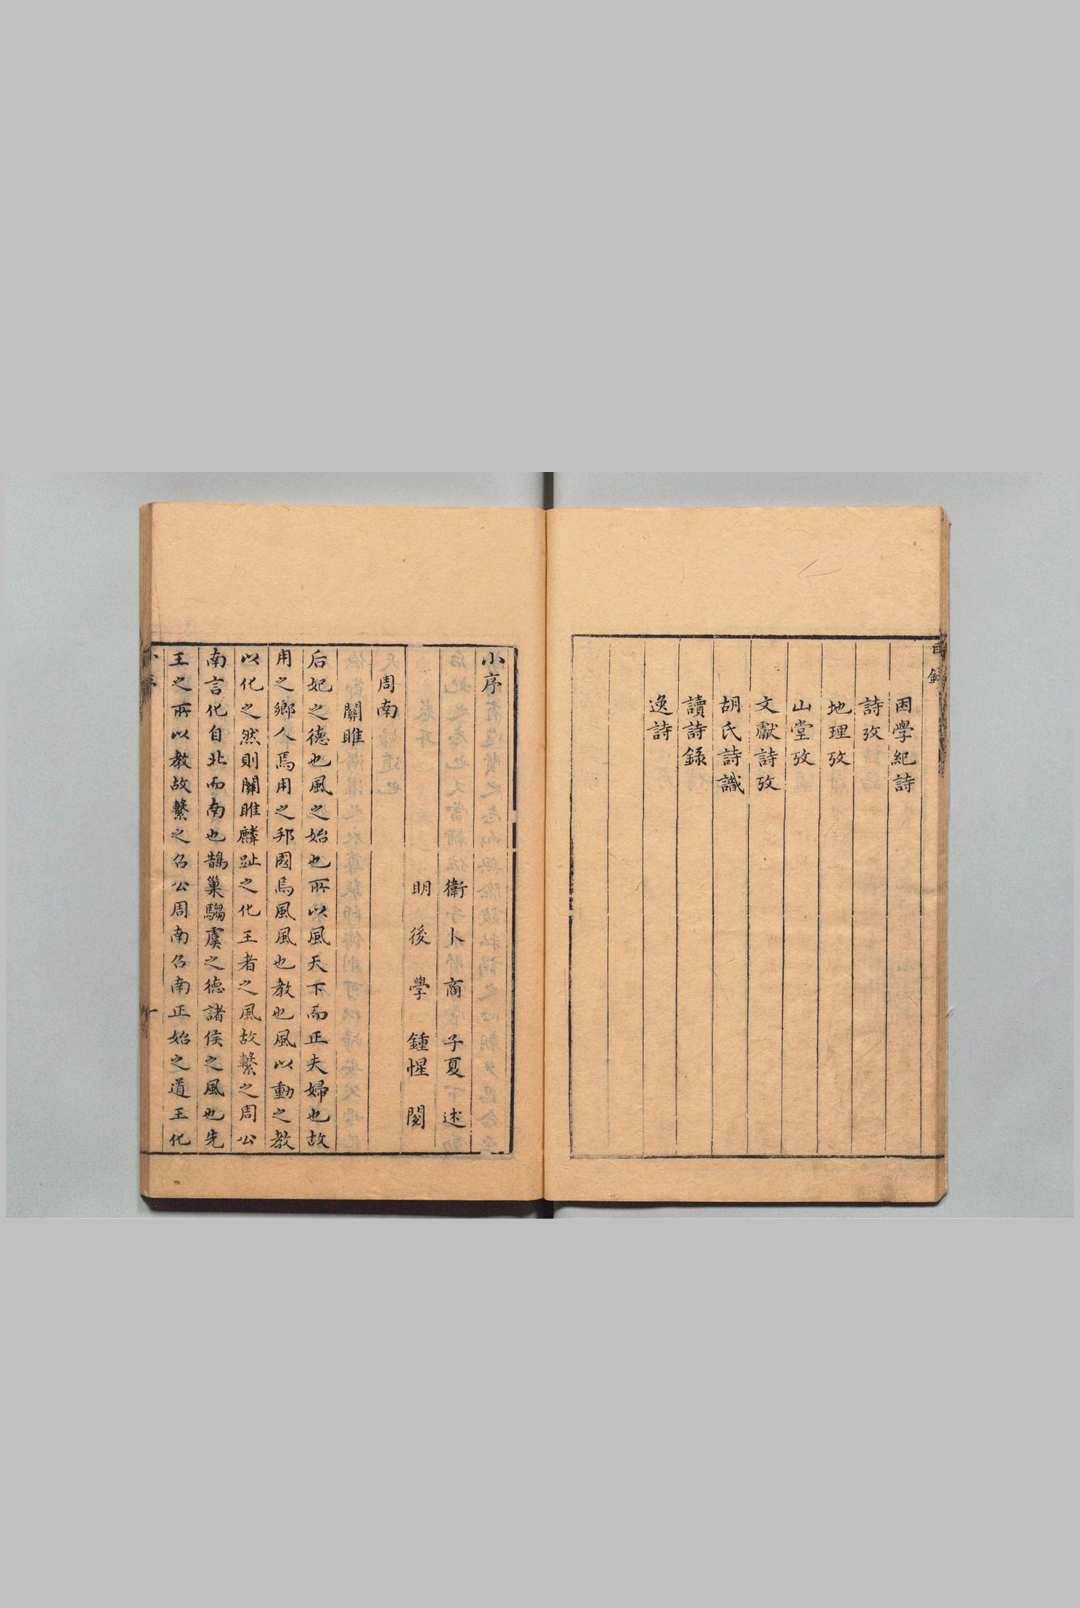 目錄
困學紀詩
詩攷
地理攷
山堂攷
文獻詩攷
胡氏詩識
讀詩錄
逸詩
小序
衛卜商子夏述
明後學鍾惺閱
周南
關雎
后妃之德也風之始也所以風天下而正夫婦也故
用之鄉人焉用之邦國焉風風也教也風以動之教
以化之然則關雎麟趾之化王者之風故繫之周公
南言化自北而南也鵲巢騶虞之德諸侯之風也先
王之所以教故繫之召公周南召南正始之道王化